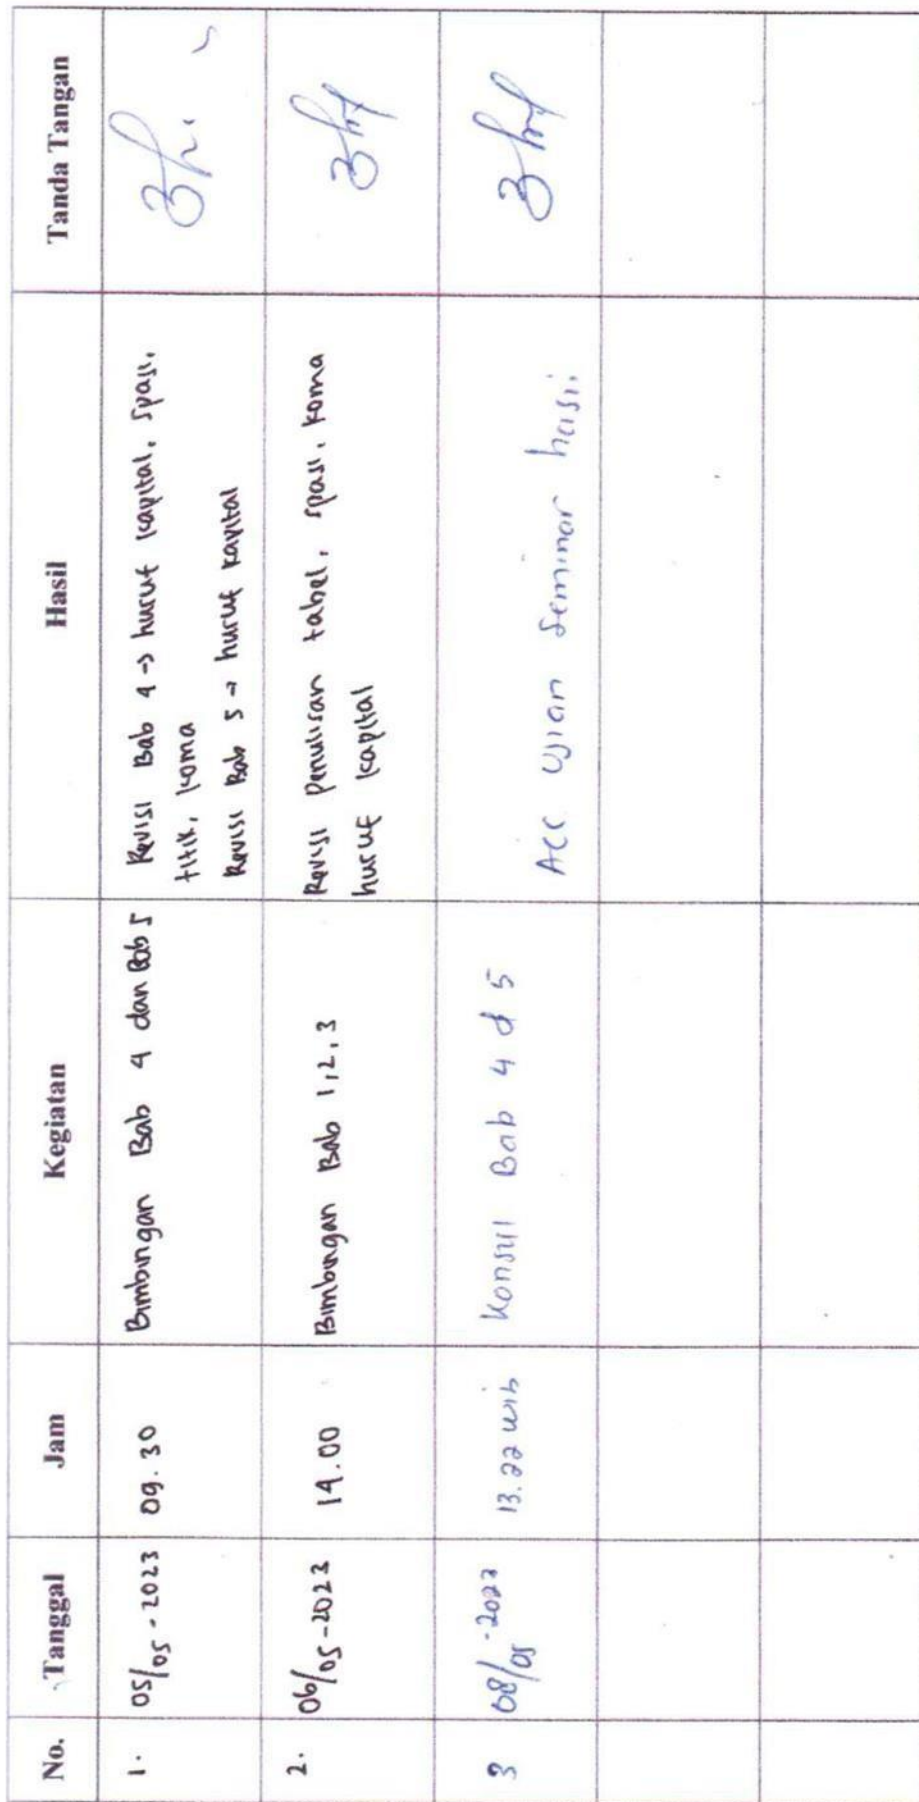 No. Tanggal Jam Kegiatan Hasil Tanda Tangan
1. 05/05-2023 09.30 Bimbingan Bab 4 dan Bab 5 Revisi Bab 4 → huruf kapital, spasi,
titik, koma
Revisi Bab 5 → huruf kapital
2. 06/05-2023 14.00 Bimbingan Bab 1,2,3 Revisi penulisan tabel, spasi, koma
huruf kapital
3 08/05-2023 13.22 wib Konsul Bab 4 d 5 ACC Ujian Seminar hasil